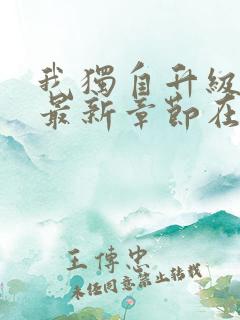 我獨自升級
最新章節在
王傳忠
未經同意禁止轉載